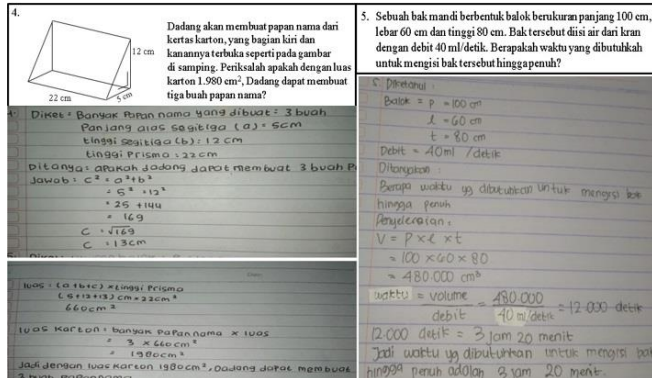 4.
Dadang akan membuat papan nama dari
kertas karton, yang bagian kiri dan
kanannya terbuka seperti pada gambar
di samping. Periksalah apakah dengan luas
karton 1.980 cm², Dadang dapat membuat
tiga buah papan nama?
12 cm
22 cm
5 cm
Diket = Banyak papan nama yang dibuat = 3 buah
Panjang alas segitiga (a) = 5cm
tinggi segitiga (b) = 12 cm
tinggi Prisma = 22 cm
Ditanya = apakah dadang dapat membuat 3 buah P
Jawab = c² = a²+b²
= 5² +12²
= 25 + 144
= 169
C = √169
C = 13cm
luas = (a+b+c) x tinggi Prisma
(5+12+13) cm x 22cm²
660cm²
luas karton = banyak papan nama x luas
= 3 x 660cm²
= 1980cm²
Jadi dengan luas karton 1980cm², Dadang dapat membuat
3 buah papan nama
5. Sebuah bak mandi berbentuk balok berukuran panjang 100 cm,
lebar 60 cm dan tinggi 80 cm. Bak tersebut diisi air dari kran
dengan debit 40 ml/detik. Berapakah waktu yang dibutuhkah
untuk mengisi bak tersebut hingga penuh?
5. Diketahui :
Balok = p = 100 cm
l = 60 cm
t = 80 cm
Debit = 40ml /detik
Ditanyakan :
Berapa waktu yg dibutuhkan untuk mengisi bak
hingga penuh
Penyelesaian :
V = P x l x t
= 100 x 60 x 80
= 480.000 cm³
waktu = volume / debit = 480.000 / 40 ml/detik = 12.000 detik
12.000 detik = 3 jam 20 menit
Jadi waktu yg dibutuhkan untuk mengisi bak
hingga penuh adalah 3 jam 20 menit.